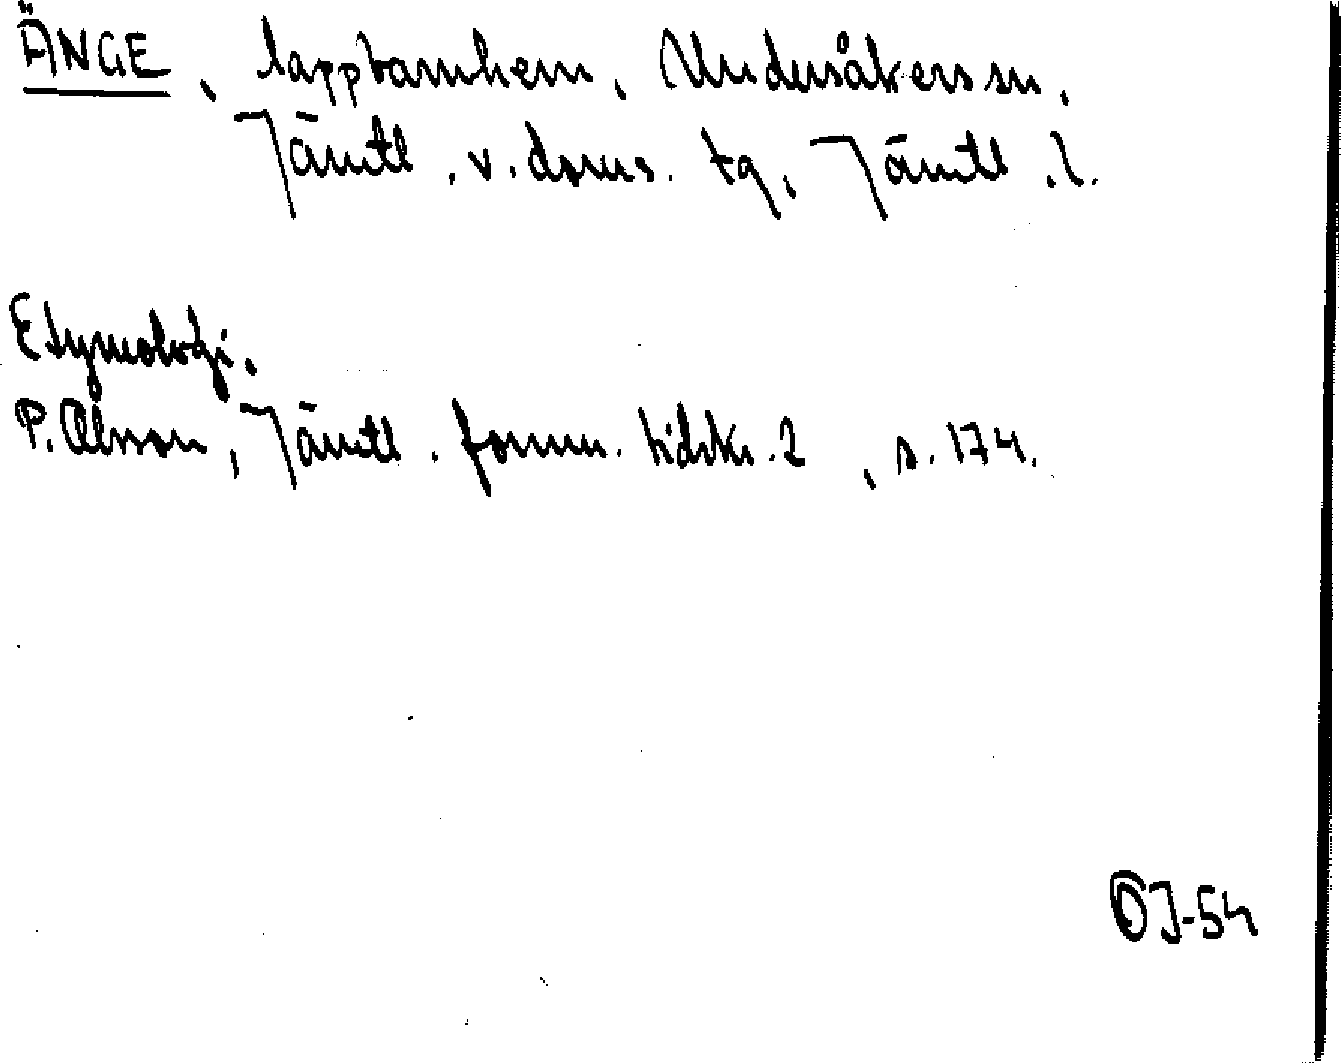 ÄNGE, lappbarnhem, Undersåkers sn,
Jämtl. v. doms. tg, Jämtl. l.
Etymologi.
P. Olsson, Jämtl. fornm. tidskr. 2, s. 174.
OJ-54